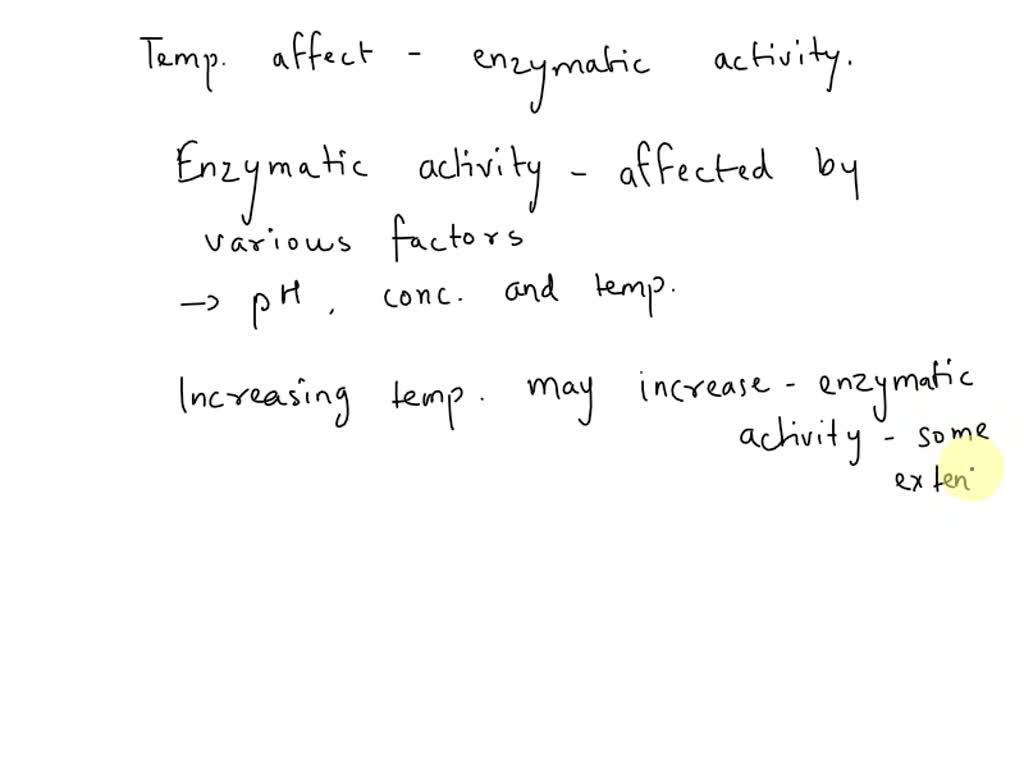 Temp. affect - enzymatic activity.
Enzymatic activity - affected by
various factors
→ pH, conc. and temp.
Increasing temp. may increase - enzymatic
activity - some
exten